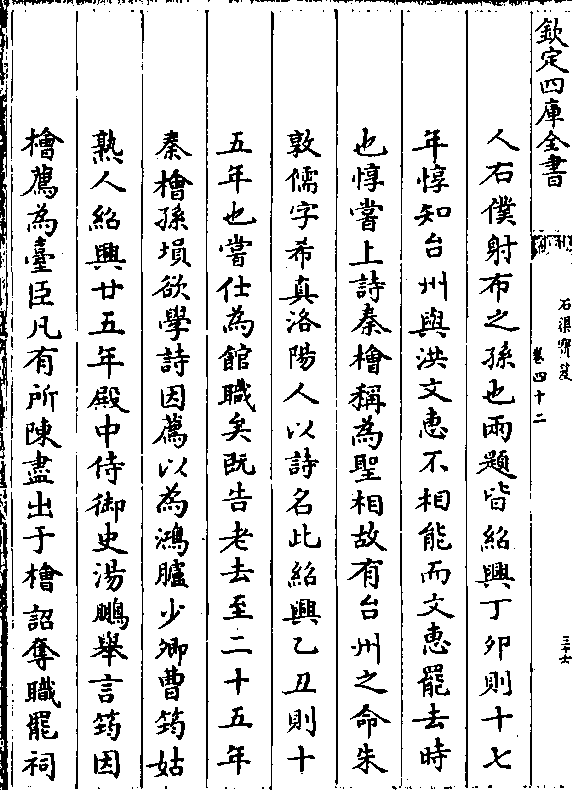 欽定四庫全書
石渠寶笈
卷四十二
三十七
人右僕射布之孫也兩題皆紹興丁卯則十七
年惇知台州與洪文惠不相能而文惠罷去時
也惇嘗上詩秦檜稱為聖相故有台州之命朱
敦儒字希真洛陽人以詩名此紹興乙丑則十
五年也嘗仕為館職矣既告老去至二十五年
秦檜孫塤欲學詩因薦以為鴻臚少卿曹筠姑
熟人紹興廿五年殿中侍御史湯鵬舉言筠因
檜薦為臺臣凡有所陳盡出于檜詔奪職罷祠